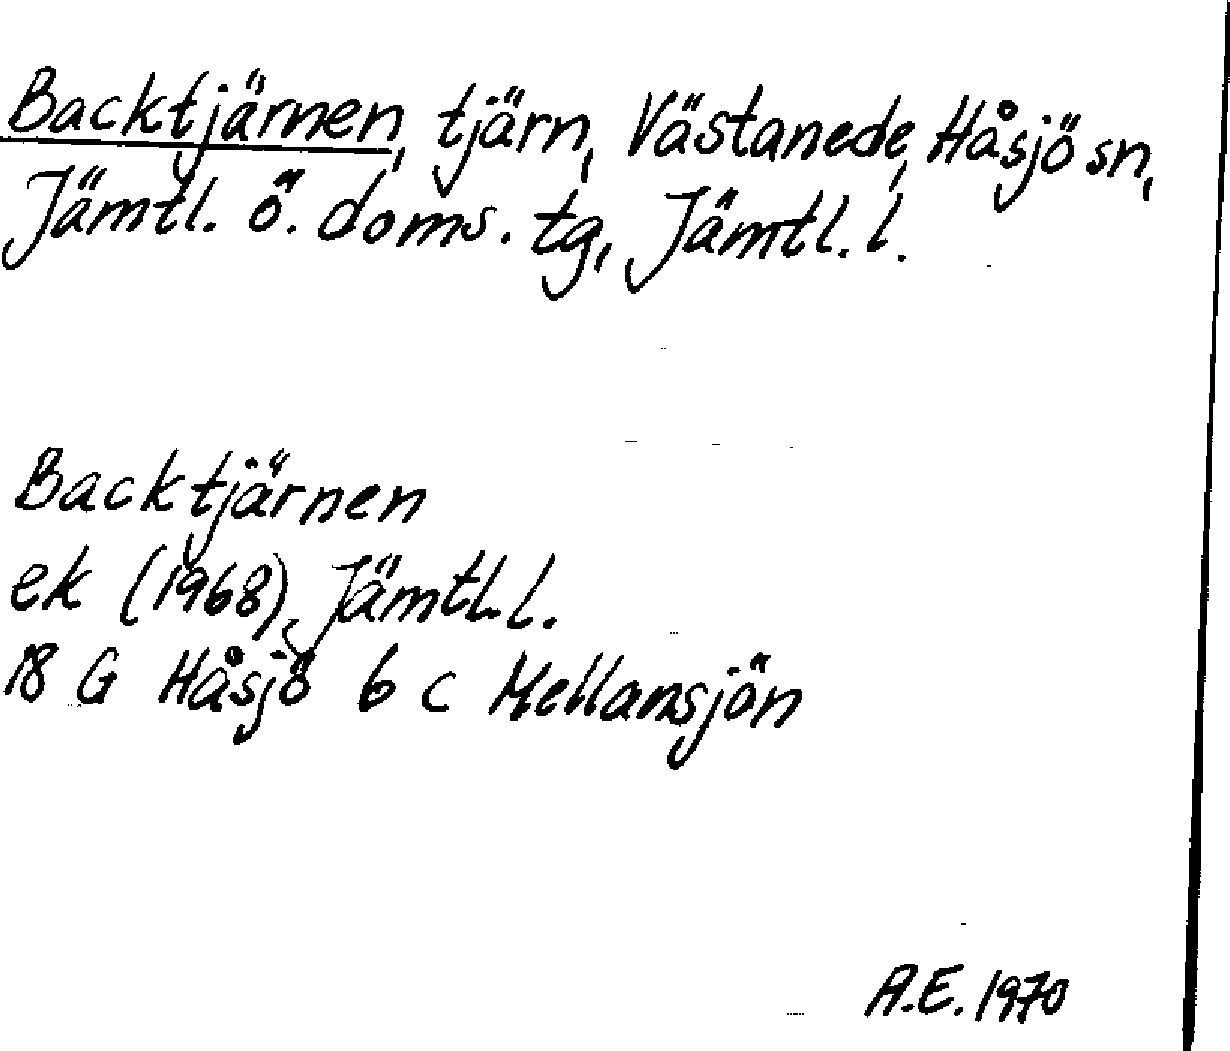 Backtjärnen, tjärn, Västanede, Håsjö sn,
Jämtl. ö. doms. tg, Jämtl. l.
Backtjärnen
ek (1968), Jämtl. l.
18 G Håsjö 6 c Mellansjön
A.E. 1970